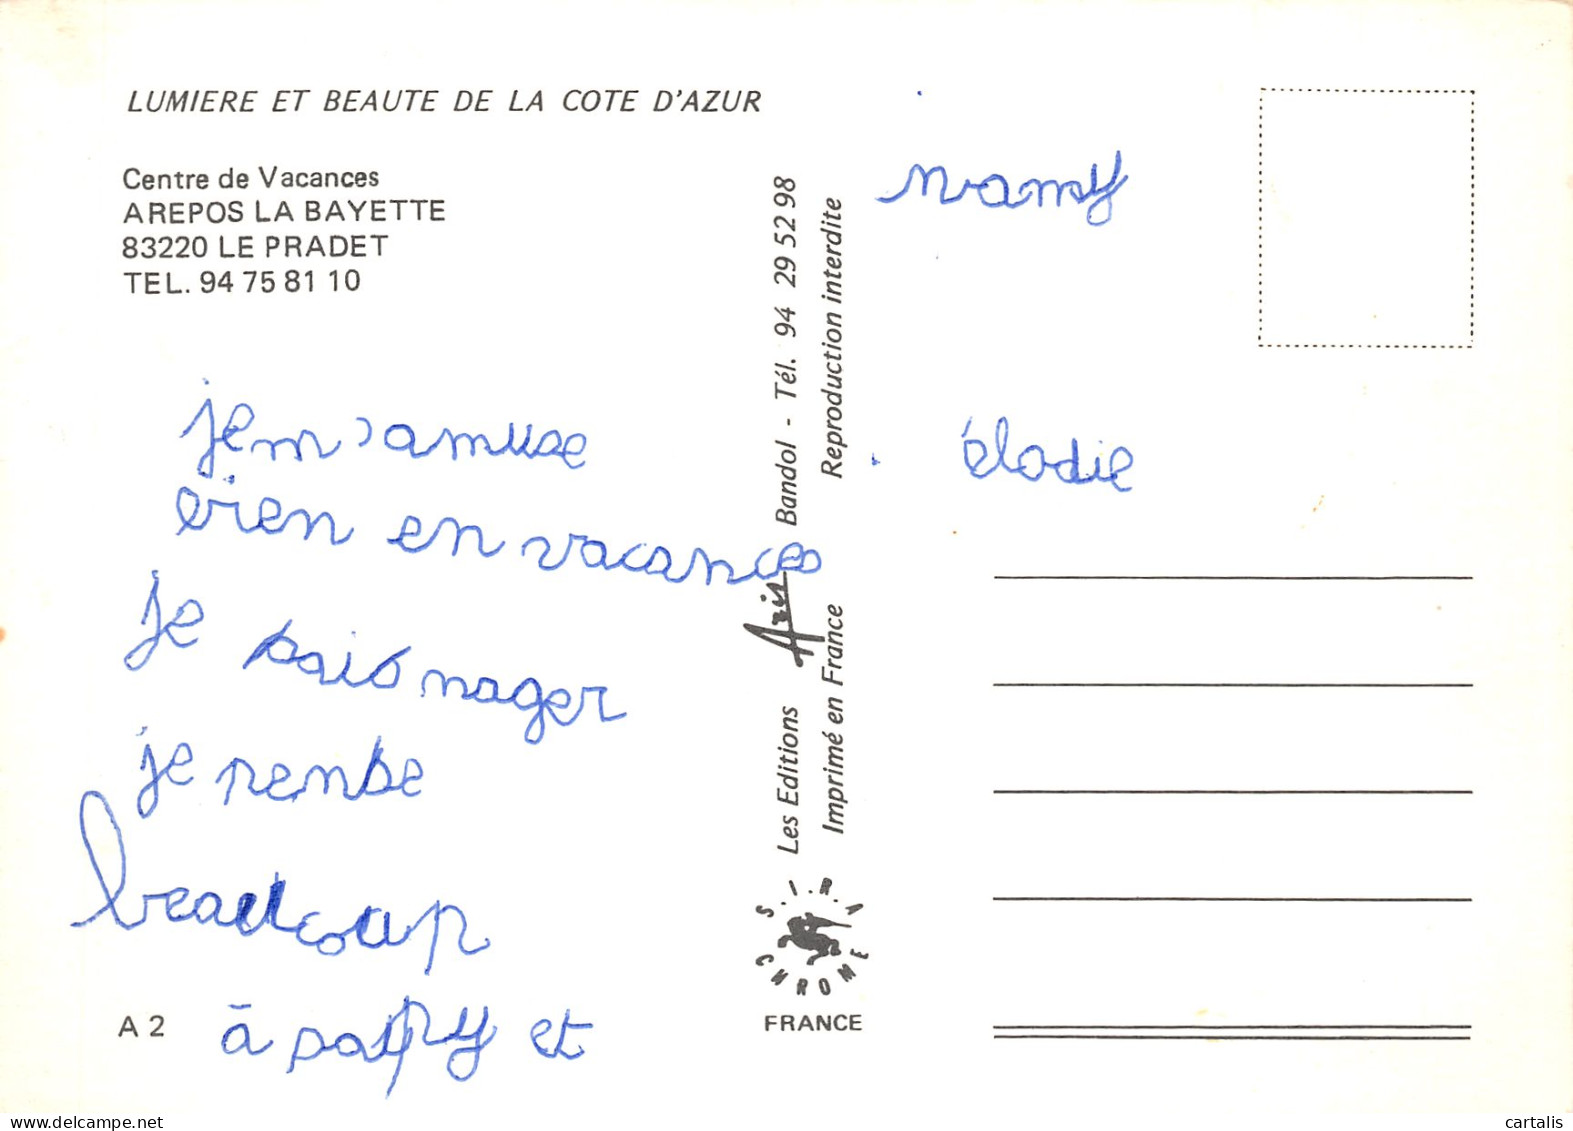 LUMIERE ET BEAUTE DE LA COTE D'AZUR
Centre de Vacances
AREPOS LA BAYETTE
83220 LE PRADET
TEL. 94 75 81 10
je m'amuse
bien en vacances
je sais nager
je pense
beaucoup
à papy et
mamy
élodie
Les Editions Aris Bandol - Tél. 94 29 52 98
Imprimé en France Reproduction interdite
S.I.R.A
CHROME
FRANCE
A 2
cartalis